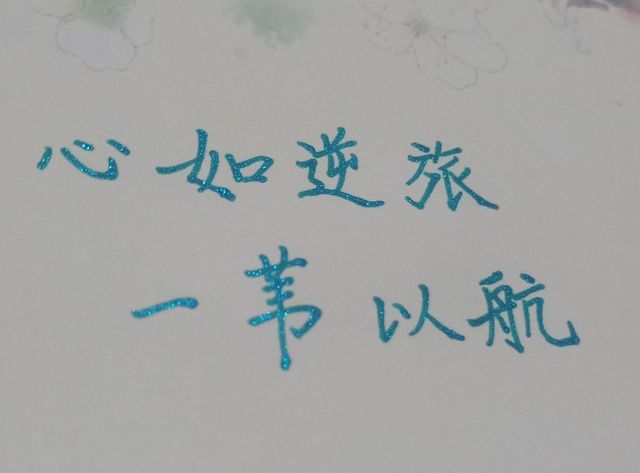 心如逆旅
一苇以航